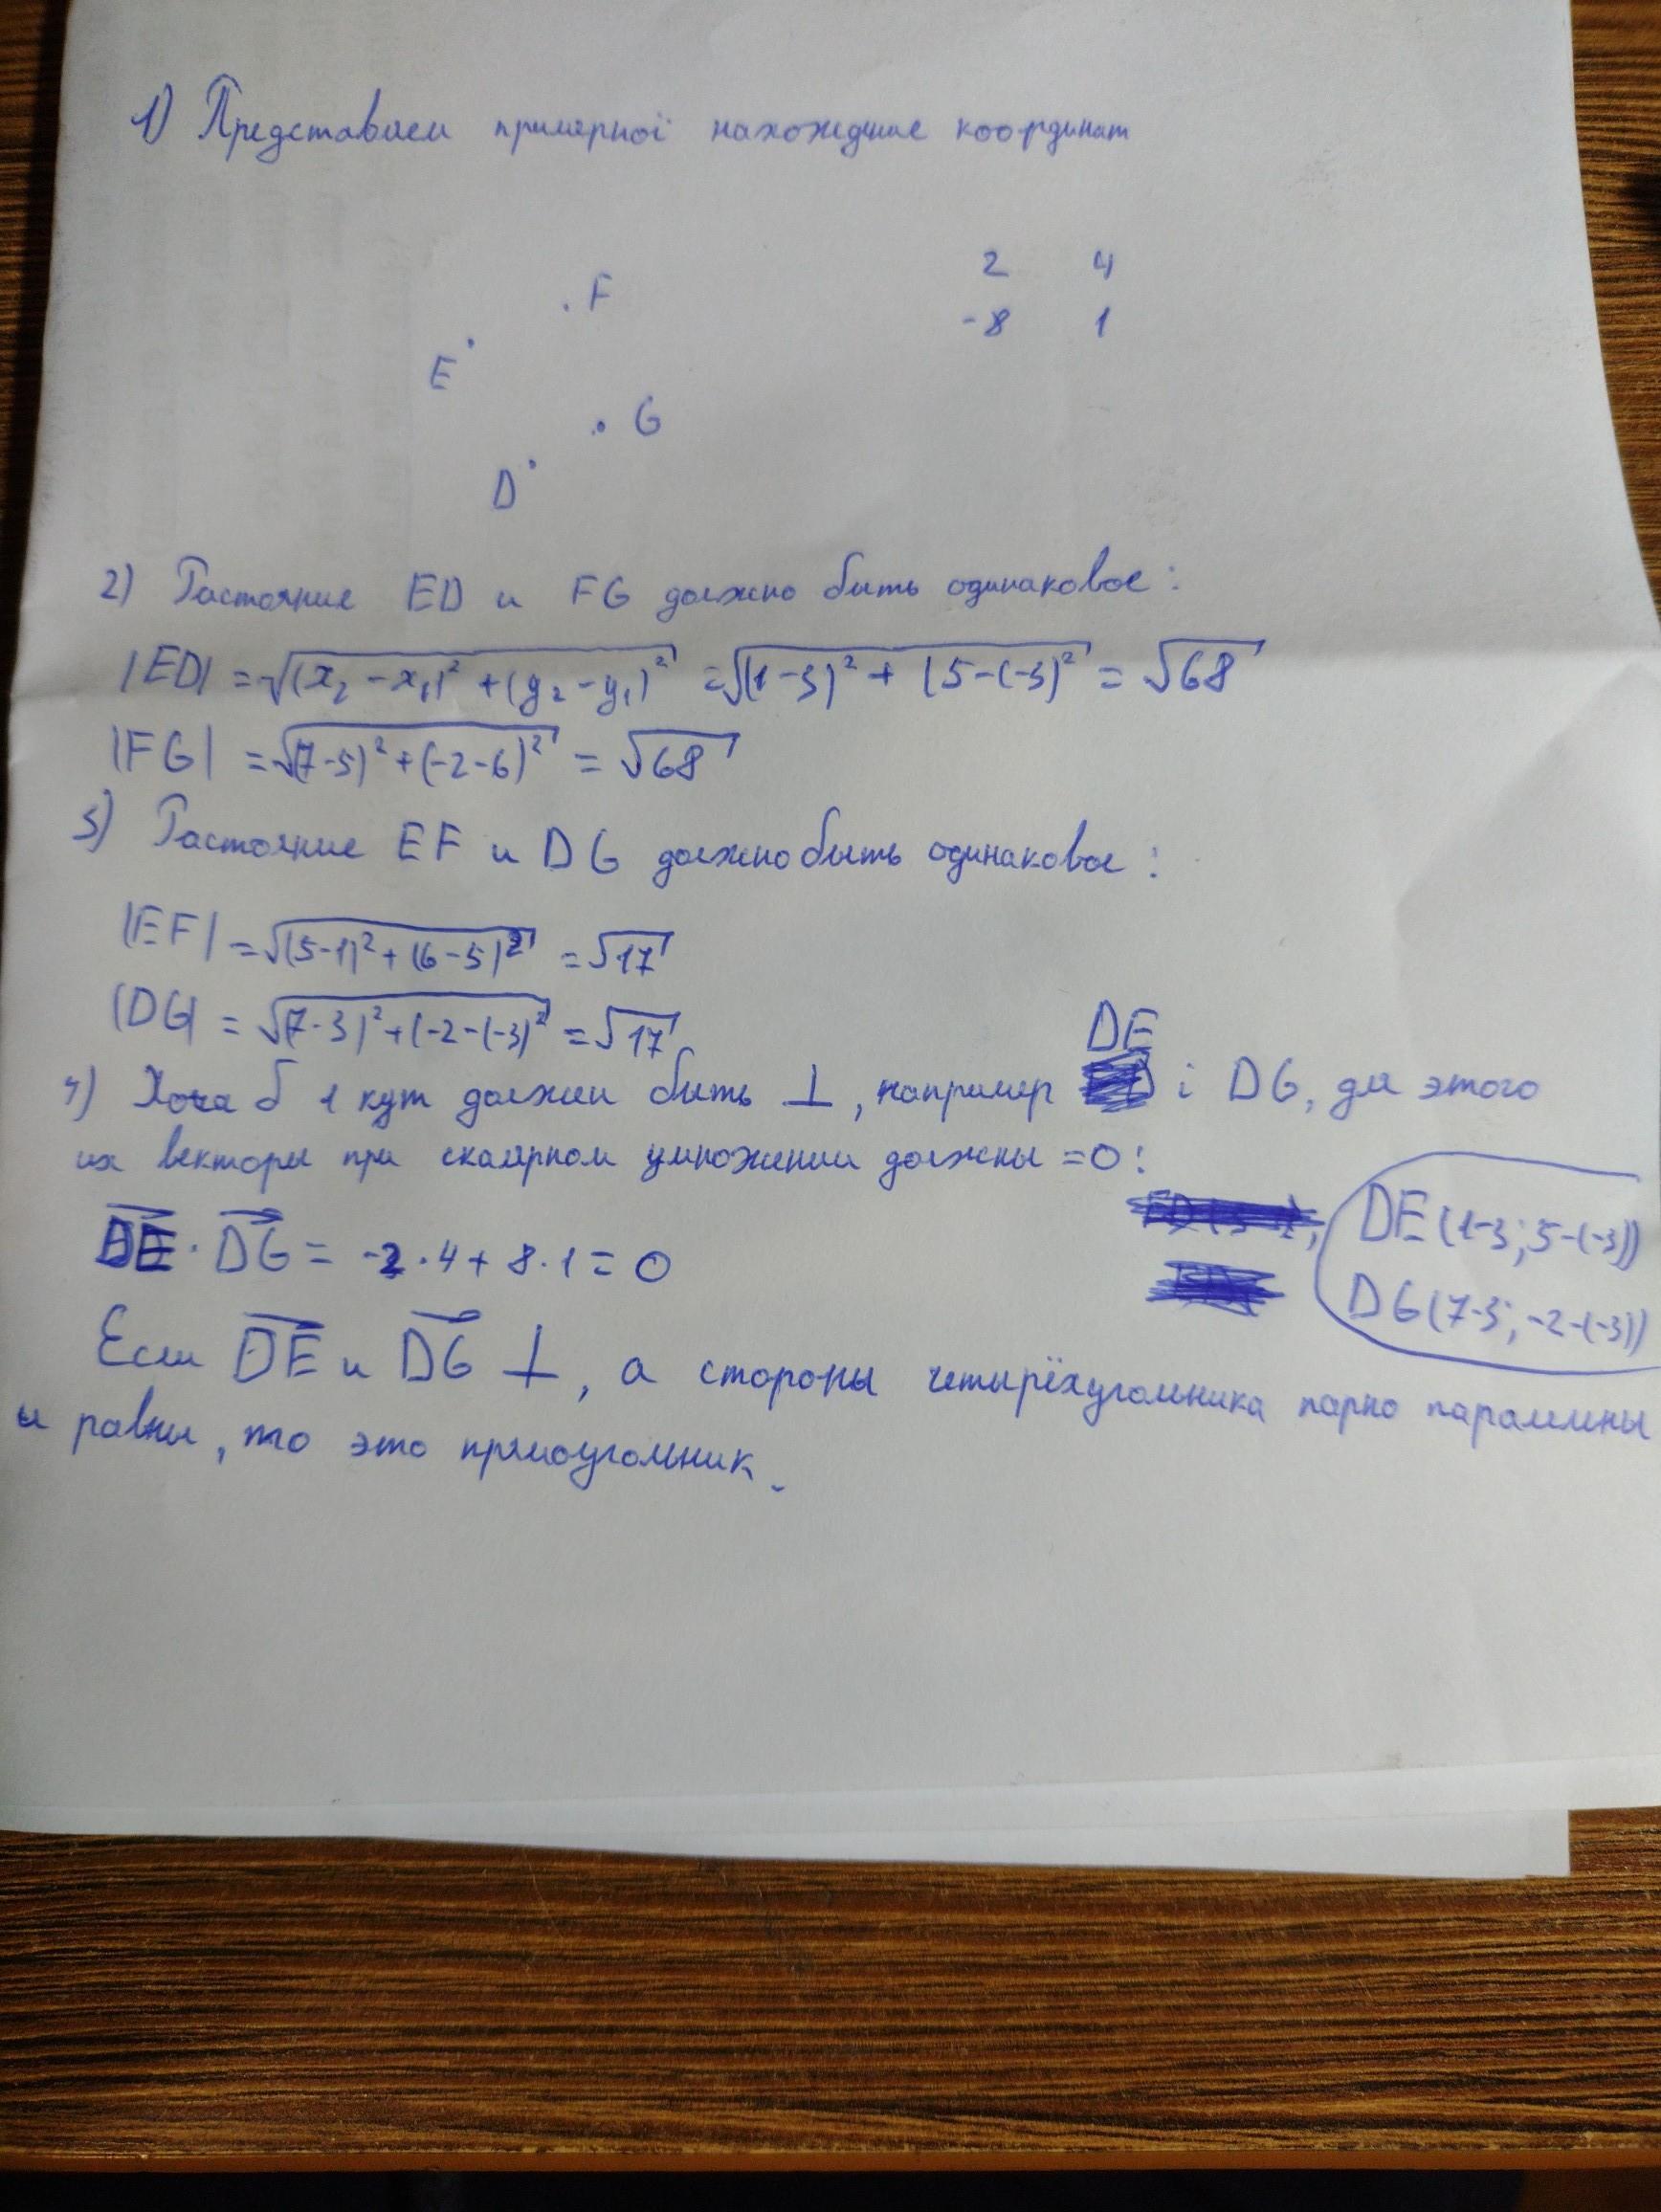 1) Представием примерної нахождние координат
2 4
-8 1
. F
E .
. G
D .
2) Растояние ED и FG должно быть одинаковое:
|ED| = √((x₂-x₁)² + (y₂-y₁)²) = √((1-3)² + (5-(-3)²) = √68
|FG| = √(7-5)² + (-2-6)² = √68
3) Растояние EF и DG должно быть одинаковое:
|EF| = √(5-1)² + (6-5)² = √17
|DG| = √(7-3)² + (-2-(-3)² = √17
DE
4) Хоча б 1 кут должен быть ⊥, например і DG, для этого
их векторы при скалярном умножении должны =0:
DE · DG = -2·4 + 8·1 = 0
DE (1-3; 5-(-3))
DG (7-3; -2-(-3))
Если DE и DG ⊥, а стороны четырёхугольника парно паралельны
и равны, то это прямоугольник.